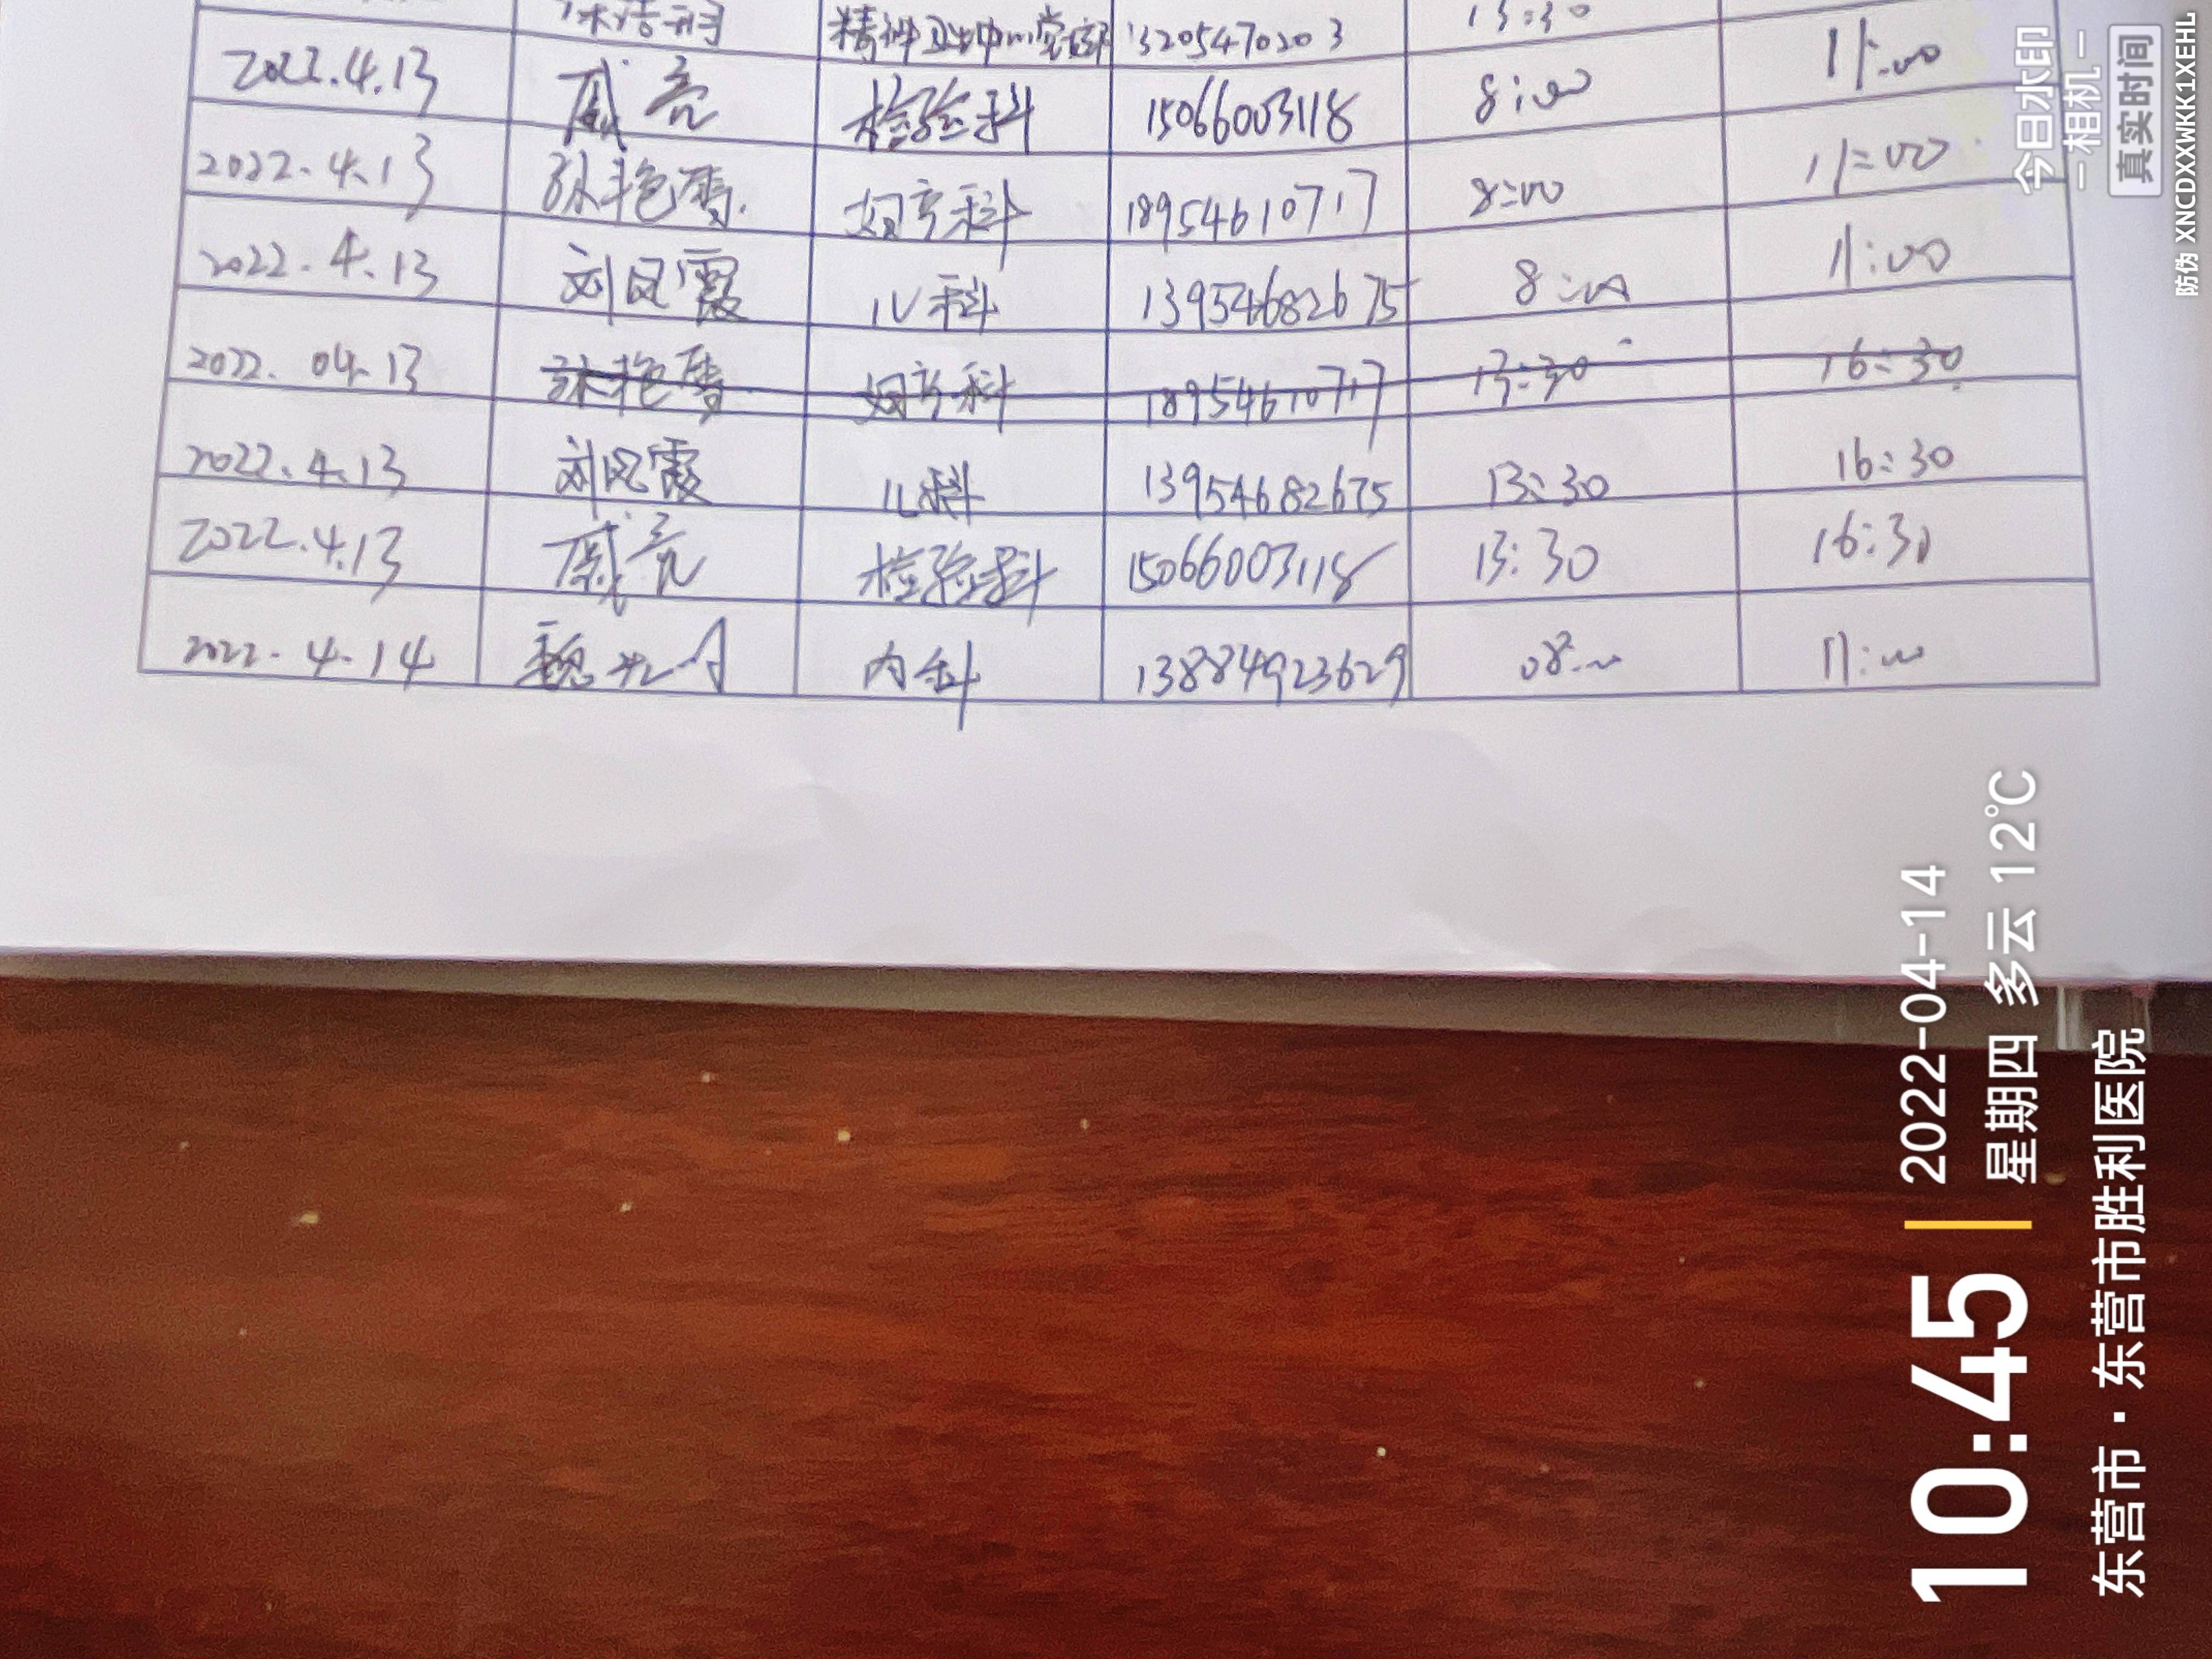 13205470203 13:30
2022.4.13 戚亮 检验科 15066003118 8:00 11:00
2022.4.13 孙艳霄 妇产科 18954610717 8:00 11:00
2022.4.13 刘凤霞 儿科 13954682675 8:00 11:00
2022.04.13 孙艳霄 妇产科 18954610717 13:30 16:30
2022.4.13 刘凤霞 儿科 13954682675 13:30 16:30
2022.4.13 戚亮 检验科 15066003118 13:30 16:30
2022.4.14 魏 内科 13884923629 08:00 11:00
今日水印
相机
真实时间
防伪 XNCDXXWKK1XEHL
10:45
2022-04-14
星期四 多云 12℃
东营市·东营市胜利医院